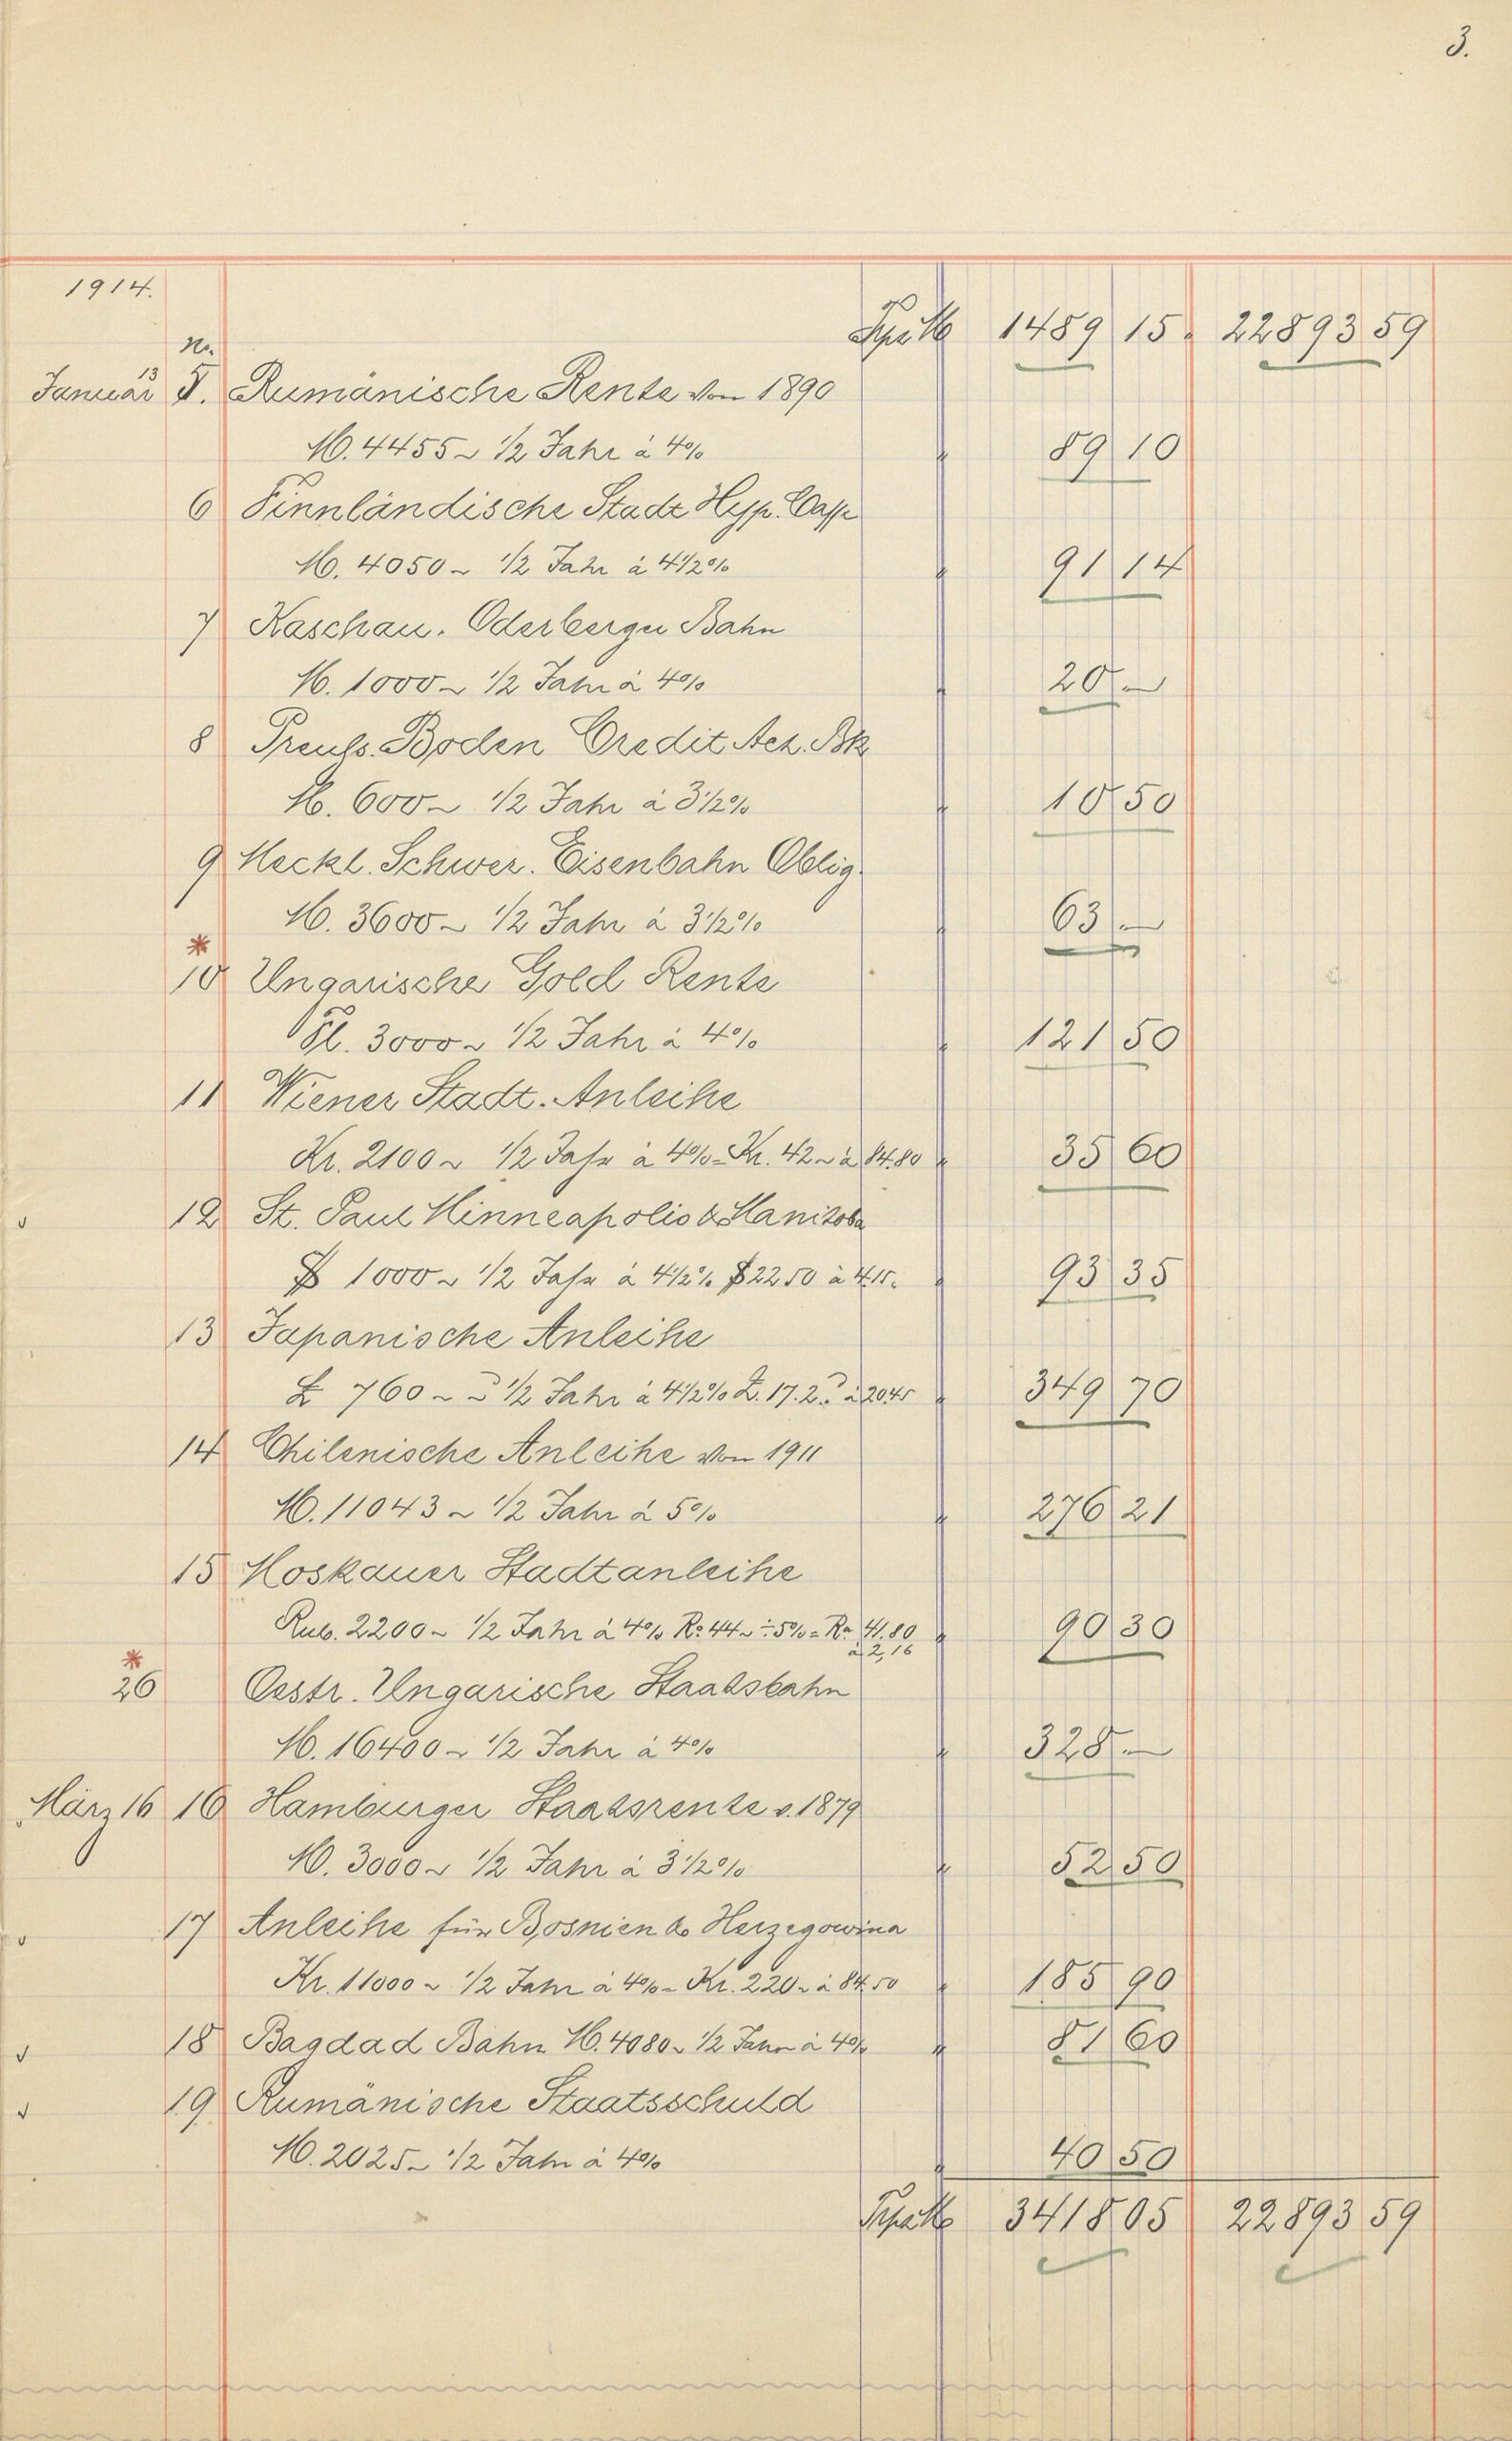 3.
1914.
1489 15 22893 59
No.
Januar 13 5. Rumänische Rente von 1890
M. 4455 ~ 1/2 Jahr à 4% 89 10
6 Finnländische Stadt Hyp. Casse
M. 4050 ~ 1/2 Jahr à 4 1/2% 91 14
7 Kaschau. Oderberger Bahn
M. 1000 ~ 1/2 Jahr à 4% 20 . ~
8 Preuss. Boden Credit Act. Bk
M. 600 ~ 1/2 Jahr à 3 1/2% 10 50
9 Meckl. Schwer. Eisenbahn Oblig.
M. 3600 ~ 1/2 Jahr à 3 1/2% 63 . ~
*
10 Ungarische Gold Rente
Fl. 3000 ~ 1/2 Jahr à 4% 121 50
11 Wiener Stadt. Anleihe
Kr. 2100 ~ 1/2 Jahr à 4% = Kr. 42 ~ à 84.80 35 60
12 St. Paul Minneapolis & Manitoba
$ 1000 ~ 1/2 Jahr à 4 1/2% $ 22 50 à 4.15. 93 35
13 Japanische Anleihe
£ 760 ~ 1/2 Jahr à 4 1/2% £. 17.2. à 20.45 349 70
14 Chilenische Anleihe von 1911
M. 11043 ~ 1/2 Jahr à 5% 276 21
15 Moskauer Stadtanleihe
Rub. 2200 ~ 1/2 Jahr à 4% Ro 44 ~ ÷ 5% = Ro 41.80 90 30
à 2,16
*
26 Oestr. Ungarische Staatsbahn
M. 16400 ~ 1/2 Jahr à 4% 328 . ~
März 16 16 Hamburger Staatsrente v. 1879
M. 3000 ~ 1/2 Jahr à 3 1/2% 52 50
17 Anleihe für Bosnien & Herzegowina
Kr. 11000 ~ 1/2 Jahr à 4% = Kr. 220 ~ à 84.50 185 90
18 Bagdad Bahn M. 4080 ~ 1/2 Jahr à 4% 81 60
19 Rumänische Staatsschuld
M. 2025 ~ 1/2 Jahr à 4% 40 50
3418 05 22893 59